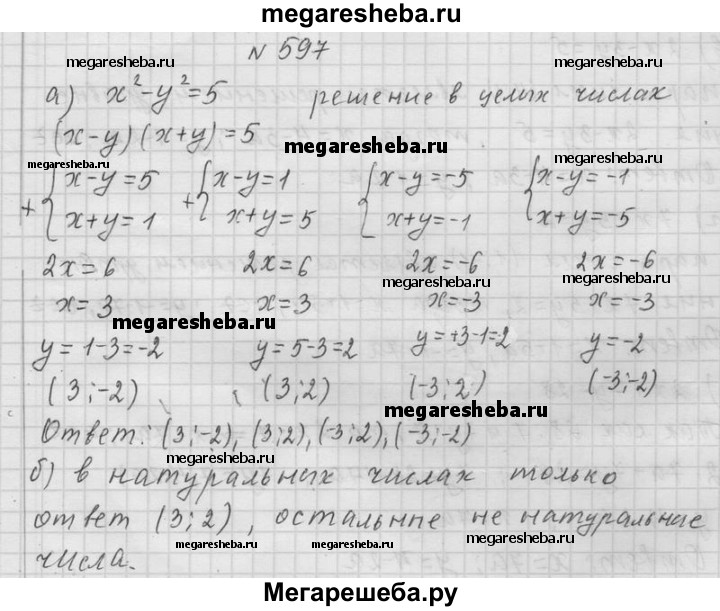 megaresheba.ru
N 597
megaresheba.ru megaresheba.ru
а) x²-y²=5 решение в целых числах
(x-y)(x+y)=5
megaresheba.ru megaresheba.ru megaresheba.ru
+{x-y=5 +{x-y=1 {x-y=-5 {x-y=-1
x+y=1 x+y=5 x+y=-1 x+y=-5
2x=6 2x=6 2x=-6 2x=-6
megaresheba.ru megaresheba.ru
x=3 x=3 x=-3 x=-3
megaresheba.ru
y=1-3=-2 y=5-3=2 y=+3-1=2 y=-2
(3;-2), (3;2) (-3;2) (-3;-2)
megaresheba.ru
Ответ: (3;-2), (3;2), (-3;2), (-3;-2)
megaresheba.ru
б) в натуральных числах только
ответ (3;2), остальные не натуральные
megaresheba.ru megaresheba.ru
числа.
Мегарешеба.ру